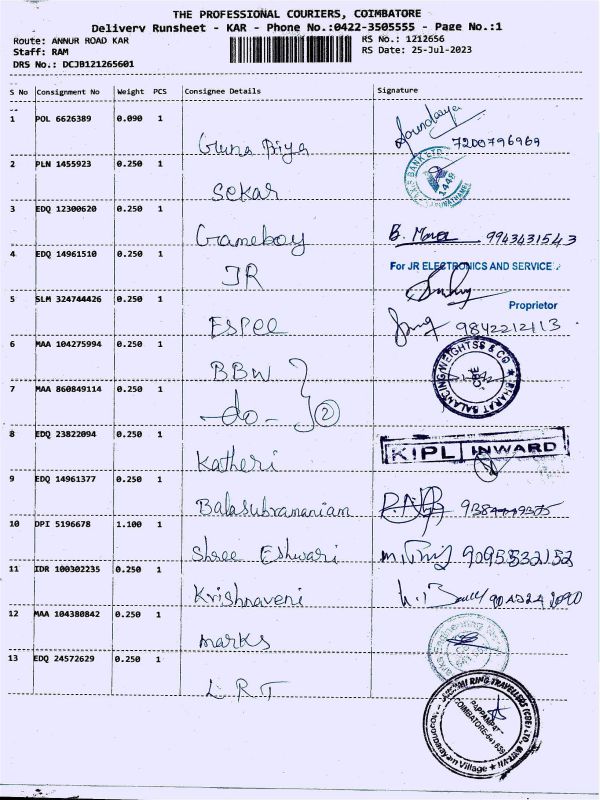 THE PROFESSIONAL COURIERS, COIMBATORE
Delivery Runsheet - KAR - Phone No.:0422-3505555 - Page No.:1
Route: ANNUR ROAD KAR
RS No.: 1212656
Staff: RAM
RS Date: 25-Jul-2023
DRS No.: DCJB121265601
S No Consignment No Weight PCS Consignee Details Signature
1 POL 6626389 0.090 1
Guna Priya 7200796969
2 PLN 1455923 0.250 1
Sekar
3 EDQ 12300620 0.250 1
Gameboy B. 9943431543
4 EDQ 14961510 0.250 1
JR
For JR ELECTRONICS AND SERVICE
Proprietor
5 SLM 324744426 0.250 1
Espee 9842212113
6 MAA 104275994 0.250 1
BBW
BHARAT BALANCING WEIGHTSS & CO
7 MAA 860849114 0.250 1
-do- 2
8 EDQ 23822094 0.250 1
Katheri
KIPL INWARD
9 EDQ 14961377 0.250 1
Balasubramaniam
10 DPI 5196678 1.100 1
Shree Eshwari
11 IDR 100302235 0.250 1
Krishnaveni
12 MAA 104380842 0.250 1
marks
13 EDQ 24572629 0.250 1
LRT